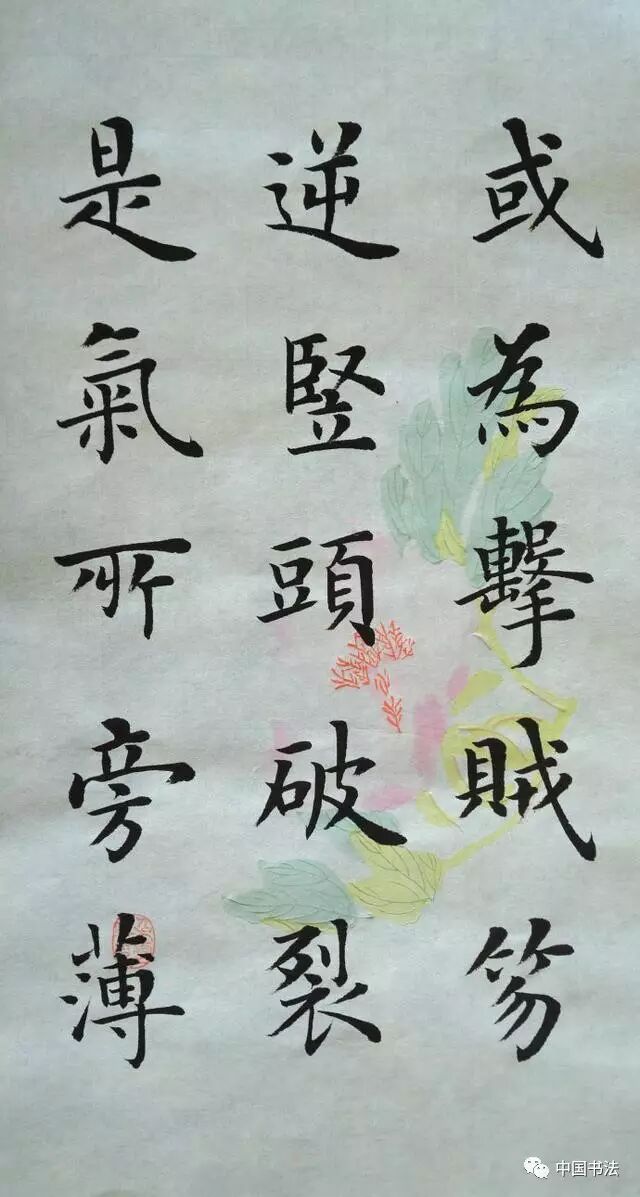 或為擊賊笏
逆豎頭破裂
是氣所旁薄
中国书法